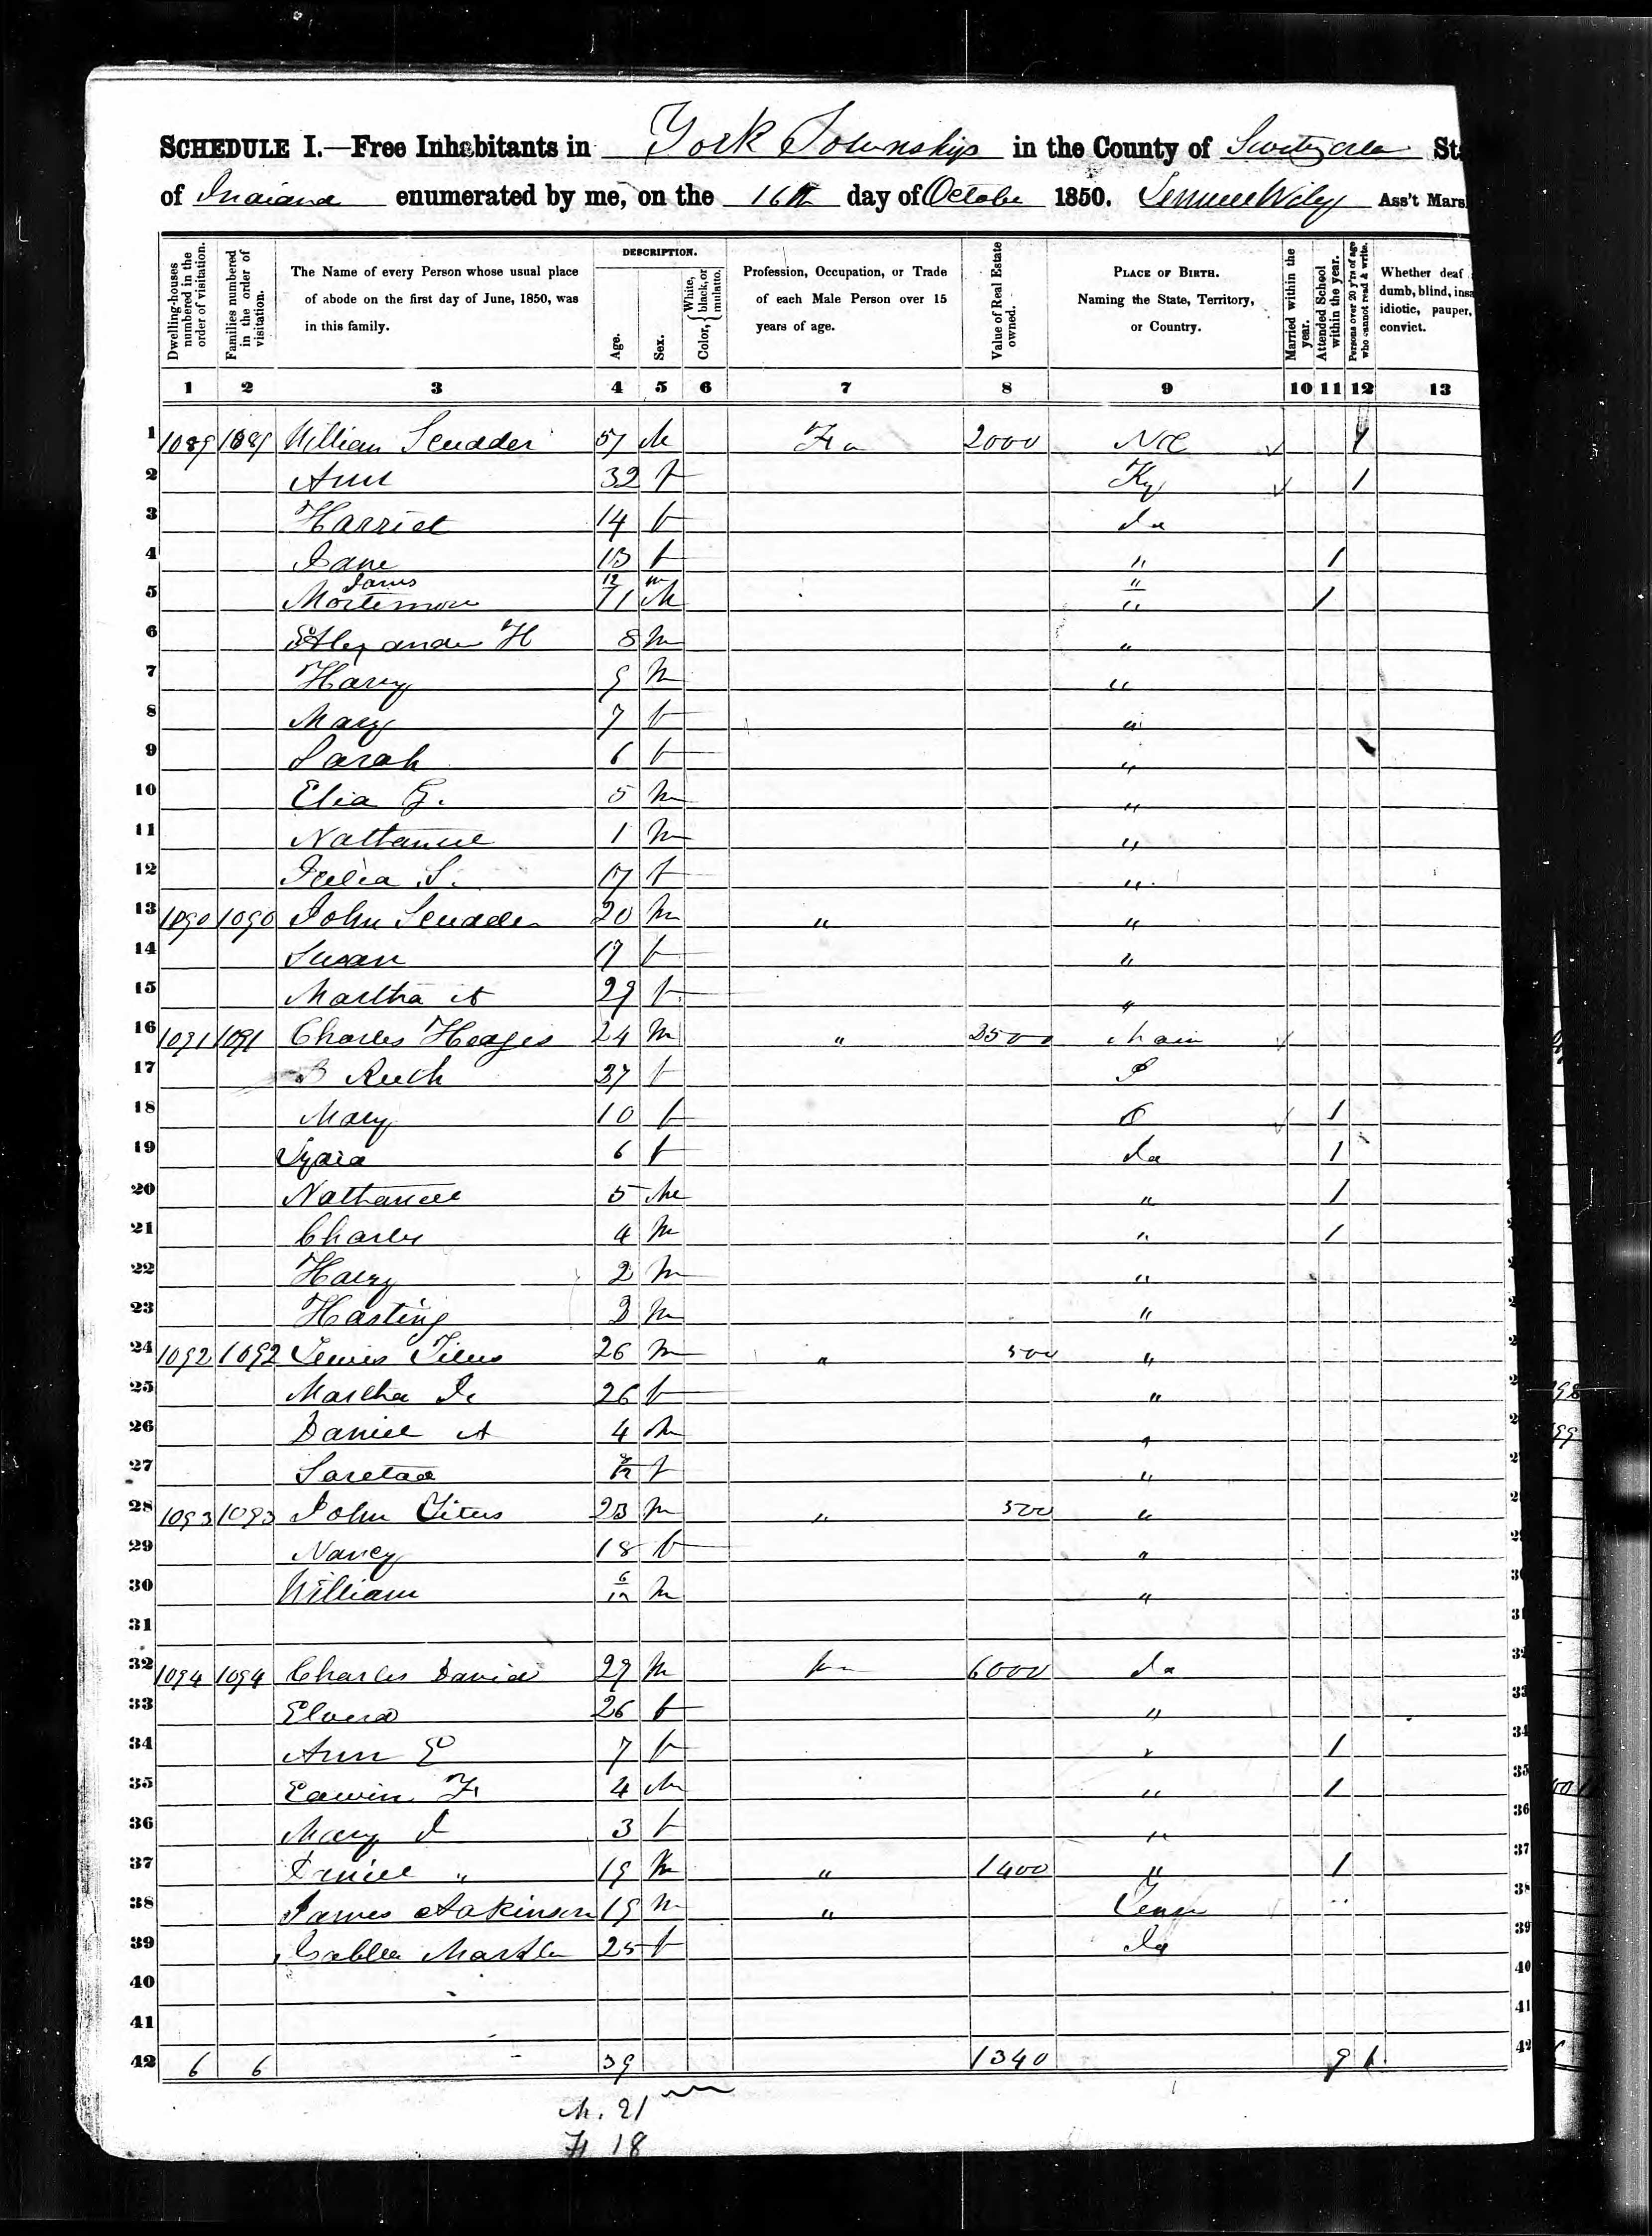 SCHEDULE I.—Free Inhabitants in York Township in the County of St
of Indiana enumerated by me, on the 16th day of October 1850. Lemuel Wiley Ass't Mars
Dwelling-houses numbered in the order of visitation.
Families numbered in the order of visitation.
The Name of every Person whose usual place of abode on the first day of June, 1850, was in this family.
DESCRIPTION.
Age.
Sex.
Color, { White, black, or mulatto.
Profession, Occupation, or Trade of each Male Person over 15 years of age.
Value of Real Estate owned.
PLACE OF BIRTH. Naming the State, Territory, or Country.
Married within the year.
Attended School within the year.
Persons over 20 y'rs of age who cannot read & write.
Whether deaf dumb, blind, insa idiotic, pauper, convict.
1 2 3 4 5 6 7 8 9 10 11 12 13
1 1089 1089 William Scudder 57 M Fa 2000 NC 1
2 Ann 32 f Ky 1
3 Harriet 14 f Ia
4 Jane 13 f " 1
James 12 m "
5 Mortimore 11 M " 1
6 Alexander H 8 m "
7 Harvy 9 m "
8 Mary 7 f "
9 Sarah 6 f "
10 Elia G. 5 m "
11 Nathaniel 1 m "
12 Julia S. 17 f "
13 1090 1090 John Scudder 20 m " "
14 Susan 19 f "
15 Martha A 29 f "
16 1091 1091 Charles Hodges 24 m " 3500 Main
17 Ruth 37 f
18 Mary 10 f O 1
19 Lydia 6 f Ia 1
20 Nathaniel 5 M " 1
21 Charles 4 m " 1
22 Harry 2 m "
23 Hasting 3 m "
24 1092 1092 Lewis Titus 26 m " 500 "
25 Martha J. 26 f "
26 Daniel A 4 m "
27 f "
28 1093 1093 John Titus 23 m " 500 "
29 Nancy 18 f "
30 William 6/12 m "
31
32 1094 1094 Charles David 29 m Fa 6000 Ia
33 Elvira 26 f "
34 Ann E 7 f " 1
35 Edwin F. 4 m " 1
36 Mary J 3 f "
37 Daniel " 19 m " 1400 " 1
38 James Adkinson 19 m "
39 25 f Ia
40
41
42 6 6 39 1340 9 1
M. 21
F 18